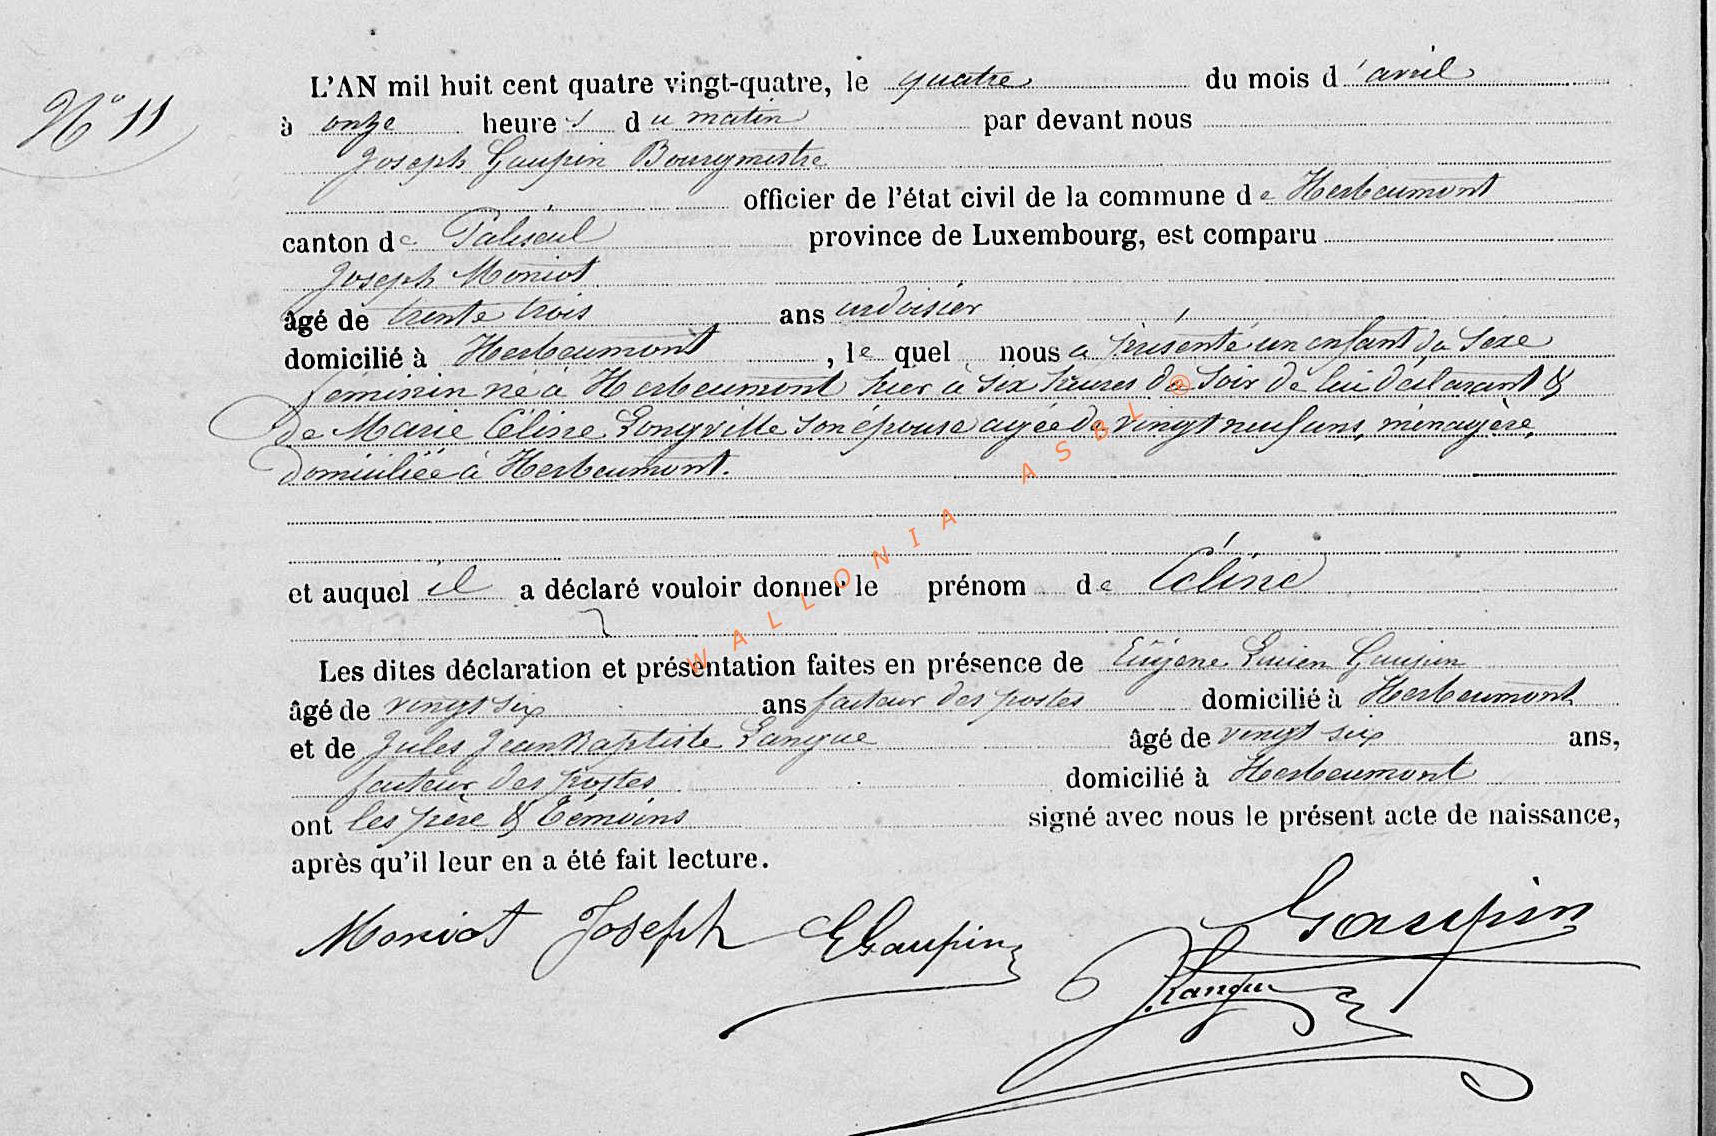 N° 11
L'AN mil huit cent quatre vingt-quatre, le quatre du mois d'avril
à onze heures du matin par devant nous
Joseph Gaupin Bourgmestre
officier de l'état civil de la commune de Herbeumont
canton de Paliseul province de Luxembourg, est comparu
Joseph Moniot
âgé de trente trois ans ardoisier
domicilié à Herbeumont, le quel nous a présenté un enfant du sexe
féminin né à Herbeumont hier à six heures du soir de lui déclarant &
de Marie Céline Longville son épouse agée de vingt neuf ans, ménagère,
domiciliée à Herbeumont.
et auquel il a déclaré vouloir donner le prénom de Céline
Les dites déclaration et présentation faites en présence de Eugène Lucien Gaupin
âgé de vingt six ans facteur des postes domicilié à Herbeumont
et de Jules Jean Baptiste Langue âgé de vingt six ans,
facteur des postes domicilié à Herbeumont
ont les père & témoins signé avec nous le présent acte de naissance,
après qu'il leur en a été fait lecture.
Moniot Joseph EGaupin Gaupin
JLangue
WALLONIA ASBL ®